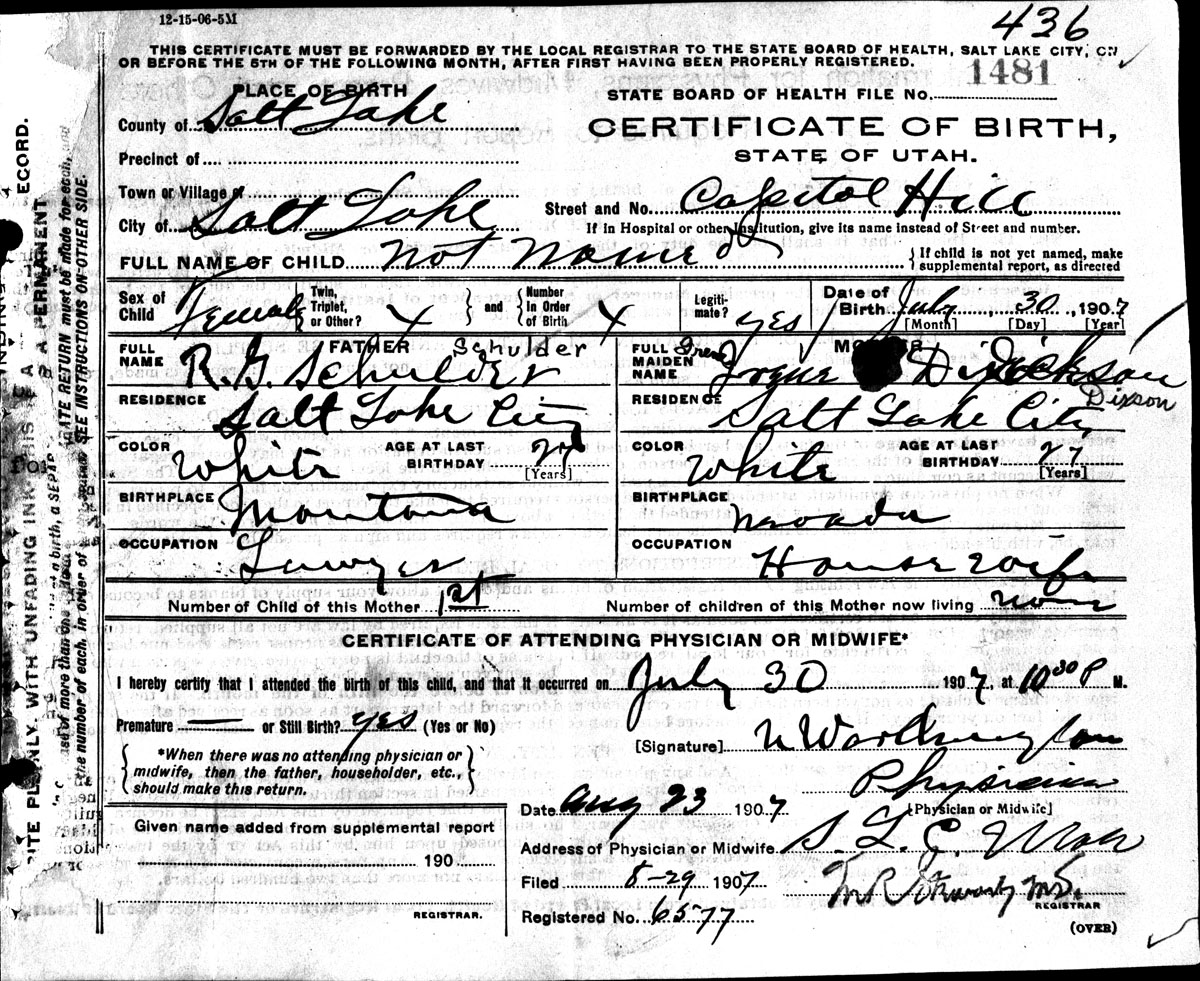 12-15-06-5M
436
THIS CERTIFICATE MUST BE FORWARDED BY THE LOCAL REGISTRAR TO THE STATE BOARD OF HEALTH, SALT LAKE CITY, ON
OR BEFORE THE 5TH OF THE FOLLOWING MONTH, AFTER FIRST HAVING BEEN PROPERLY REGISTERED.
1481
PLACE OF BIRTH
STATE BOARD OF HEALTH FILE NO.
County of Salt Lake
CERTIFICATE OF BIRTH,
Precinct of
STATE OF UTAH.
Town or Village of
Street and No. Capitol Hill
City of Salt Lake
If in Hospital or other Institution, give its name instead of Street and number.
FULL NAME OF CHILD Not Named
{ If child is not yet named, make supplemental report, as directed
Sex of Child Female
Twin, Triplet, or Other? X } and { Number In Order of Birth X
Legitimate? Yes
Date of Birth July 30, 1907
[Month] [Day] [Year]
FATHER
FULL NAME R. G. Schulder Schulder
RESIDENCE Salt Lake City
COLOR White AGE AT LAST BIRTHDAY 27 [Years]
BIRTHPLACE Montana
OCCUPATION Lawyer
MOTHER
FULL MAIDEN NAME Irene Irene Dickson
Dixson
RESIDENCE Salt Lake City
COLOR White AGE AT LAST BIRTHDAY 27 [Years]
BIRTHPLACE Nevada
OCCUPATION House wife
Number of Child of this Mother 1st Number of children of this Mother now living none
CERTIFICATE OF ATTENDING PHYSICIAN OR MIDWIFE*
I hereby certify that I attended the birth of this child, and that it occurred on July 30 1907, at 10 30 P M.
Premature — or Still Birth? Yes (Yes or No)
{ *When there was no attending physician or midwife, then the father, householder, etc., should make this return. }
[Signature] Worthington
Physician
[Physician or Midwife]
Date Aug 23 1907
Given name added from supplemental report
190
REGISTRAR.
Address of Physician or Midwife
Filed 8-29 1907
REGISTRAR
Registered No. 6577
(OVER)
SEE INSTRUCTIONS ON OTHER SIDE.